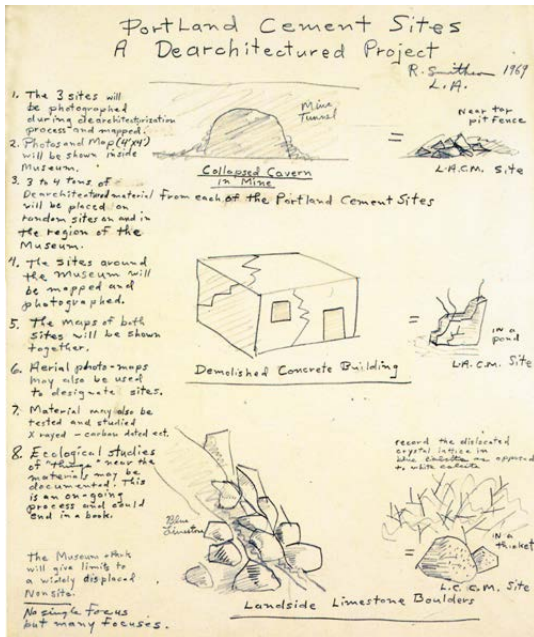 Portland Cement Sites
A Dearchitectured Project
R. Smithson 1969
L.A.
1. The 3 sites will
be photographed
during dearchitecturization
process and mapped.
2. Photos and Map (4'x4')
will be shown inside
Museum.
3. 3 to 4 tons of
Dearchitectured material from each of the Portland Cement Sites
will be placed on
random sites on and in
the region of the
Museum.
4. The sites around
the Museum will
be mapped and
photographed.
5. The maps of both
sites will be shown
together.
6. Aerial photo-maps
may also be used
to designate sites.
7. Material may also be
tested and studied
X rayed - carbon dated ect.
8. Ecological studies
of "things" near the
materials may be
documented! This
is an on-going
process and could
end in a book.
The Museum
will give limits to
a widely displaced
Nonsite.
No single focus
but many focuses.
Mine
Tunnel
=
Near tar
pit fence
L.A.C.M. Site
Collapsed Cavern
in Mine
=
in a
pond
L.A.C.M. Site
Demolished Concrete Building
record the dislocated
crystal lattice in
blue as opposed
to white calcite
Blue
Limestone
=
in a
thicket
L.C.C.M. Site
Landside Limestone Boulders